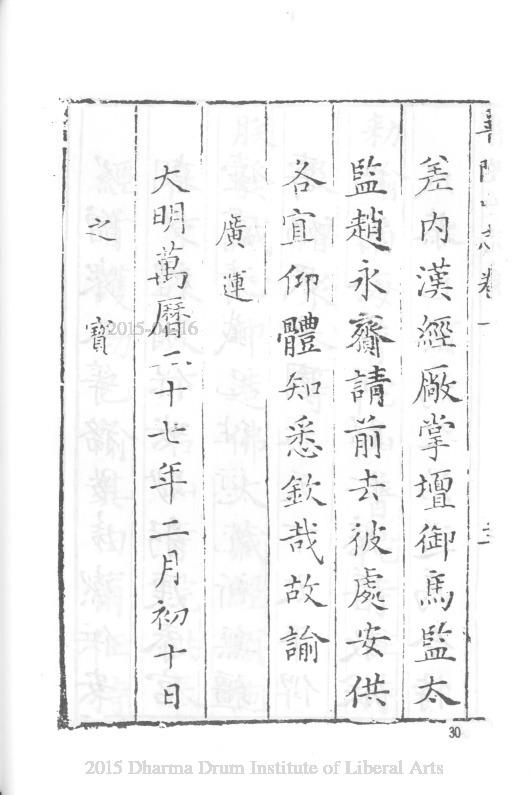 差內漢經厰掌壇御馬監太
監趙永齎請前去彼處安供
各宜仰體知悉欽哉故諭
廣運
大明萬曆二十七年二月初十日
之寶
2015-04-16
30
2015 Dharma Drum Institute of Liberal Arts